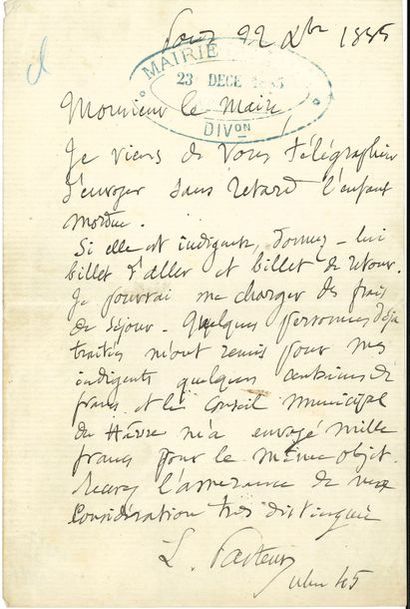 Paris 22 Xbre 1885
MAIRIE
23 DECE 1885
DIVON
Monsieur le Maire,
Je viens de vous télégraphier
d'envoyer sans retard l'enfant
mordue.
Si elle est indigente, donnez-lui
billet d'aller et billet de retour.
Je pourrai me charger des frais
de séjour. Quelques personnes déjà
traitées m'ont remis pour mes
indigents quelques centaines de
francs et le Conseil municipal
du Hâvre m'a envoyé mille
francs pour le même objet.
Recevez l'assurance de ma
considération très distinguée
L. Pasteur
45